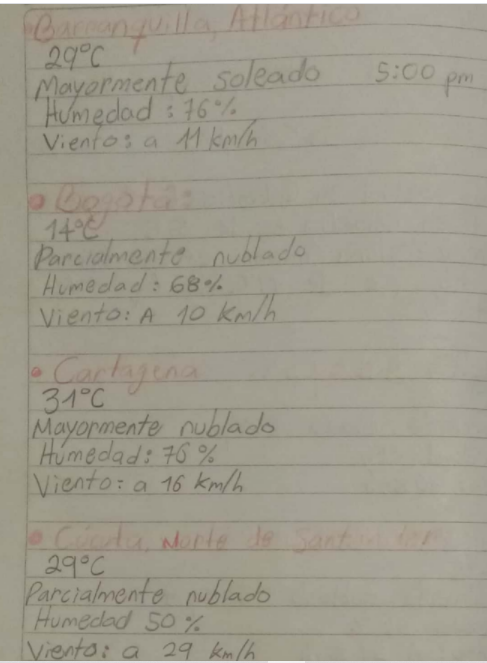 •Barranquilla, Atlántico
29°C
Mayormente soleado 5:00 pm
Humedad: 76%
Viento: a 11 km/h
• Bogotá:
14°C
Parcialmente nublado
Humedad: 68%
Viento: A 10 km/h
• Cartagena
31°C
Mayormente nublado
Humedad: 76 %
Viento: a 16 km/h
• Cúcuta, Norte de Santander
29°C
Parcialmente nublado
Humedad 50 %
Viento: a 29 km/h